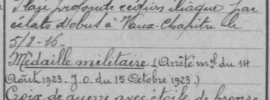 Plaie profonde région iliaque par
éclats d'obus à Vaux-Chapitre le
5/8-16
Médaille militaire (Arrêté mel du 14
Août 1923. J.O. du 15 Octobre 1923.)
Croix de guerre avec étoile de bronze